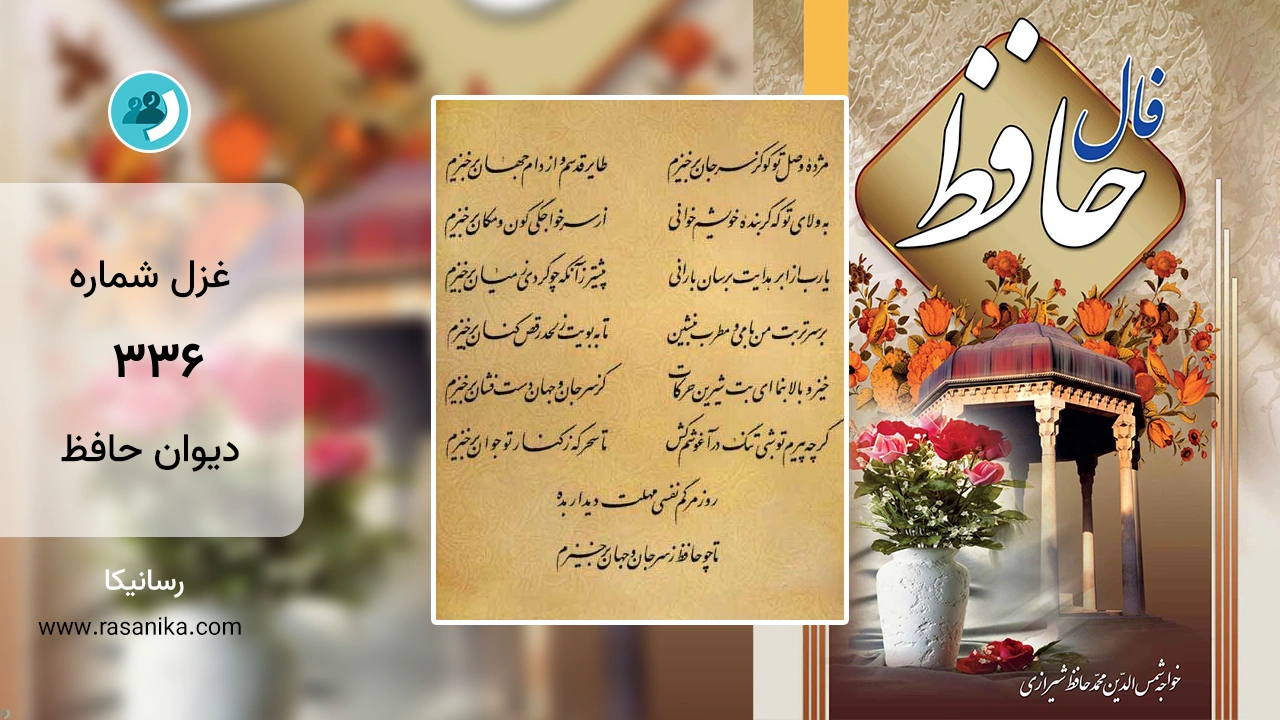 فال
حافظ
مژدهٔ وصل تو کو کز سر جان برخیزم
طایر قدسم و از دام جهان برخیزم
به ولای تو که گر بندهٔ خویشم خوانی
از سر خواجگی کون و مکان برخیزم
یارب از ابر هدایت برسان بارانی
پیشتر زآنکه چو گردی ز میان برخیزم
بر سر تربت من با می و مطرب بنشین
تا به بویت ز لحد رقص کنان برخیزم
خیز و بالا بنما ای بت شیرین حرکات
کز سر جان و جهان دست فشان برخیزم
گرچه پیرم تو شبی تنگ در آغوشم کش
تا سحرگه ز کنار تو جوان برخیزم
روز مرگم نفسی مهلت دیدار بده
تا چو حافظ ز سر جان و جهان برخیزم
غزل شماره
۳۳۶
دیوان حافظ
رسانیکا
www.rasanika.com
خواجه شمس الدّین محمّد حافظ شیرازی